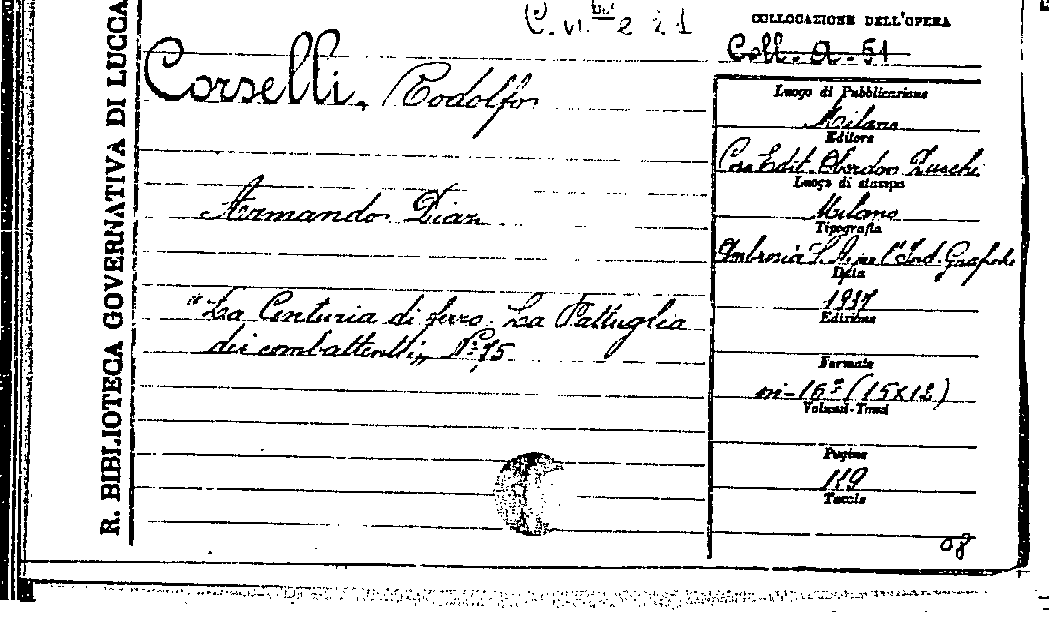 R. BIBLIOTECA GOVERNATIVA DI LUCCA
COLLOCAZIONE DELL'OPERA
Coll. a. 51
Corselli, Rodolfo
Armando Diaz
"La Centuria di ferro. La Pattuglia
dei combattenti„ N. 15
Luogo di Pubblicazione
Milano
Editore
Casa Edit. Oberdan Zucchi
Luogo di stampa
Milano
Tipografia
Ambrosia S. A. per l'Ind. Grafiche
Data
1937
Edizione
Formato
in-16º (15x12)
Volumi-Tomi
Pagine
119
Tavole
08